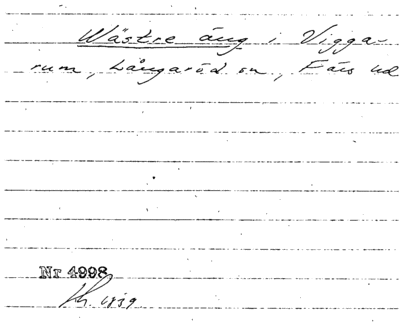 Wästre äng i Vigga-
rum, Långaröd sn, Färs hd
Nr 4998
Lh. 1829